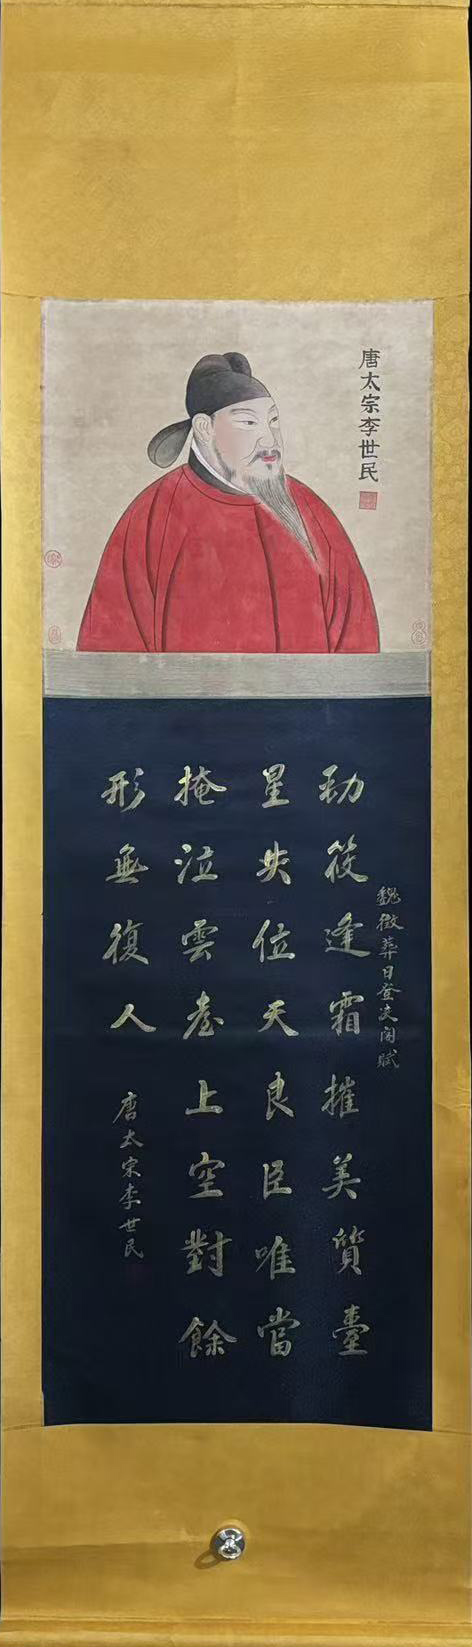 唐太宗李世民
魏徵葬日登凌閣賦
勁筱逢霜摧美質臺
星失位天良臣唯當
掩泣雲臺上空對餘
形無復人
唐太宗李世民